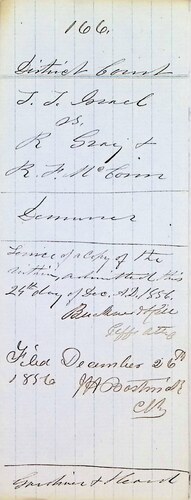 166.
District Court
T. T. Israel
vs.
R Gray &
R. F. McCown
Demurrer
Service of a copy of the
within admitted this
24th day of Dec. A.D. 1856.
Plffs attys
Filed December 26th
1856
Clk
Gardiner &